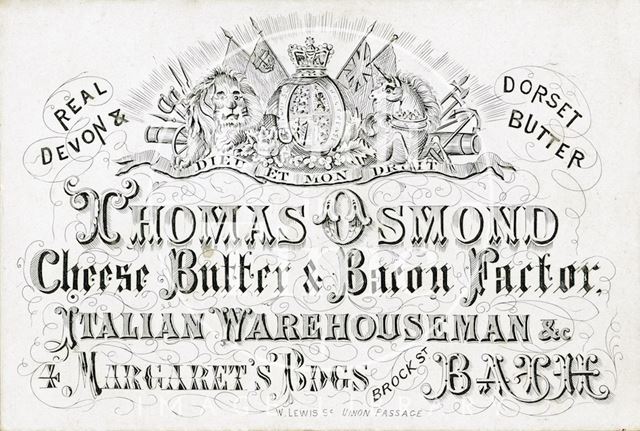 REAL
DEVON &
DORSET
BUTTER
DIEU ET MON DROIT
THOMAS OSMOND
Cheese Butter & Bacon Factor.
ITALIAN WAREHOUSEMAN &c
4, MARGARET'S BDGS BROCK ST BATH
W. LEWIS Sc UNION PASSAGE